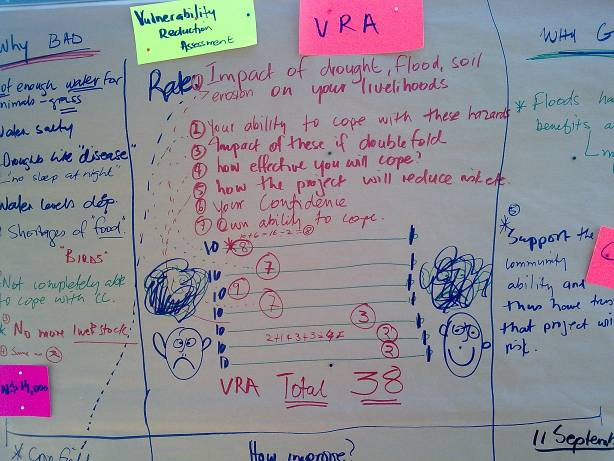 Vulnerability
Reduction
Assessment
VRA
Why BAD
Not enough water for
animals - grass
Water salty
Drought like "disease"
"no sleep at night"
Water levels dep.
Shortages of "food"
"BIRDS"
Not completely able
to cope with CC.
No more livestock
Same as ②
N$ 14,000
Rate
① Impact of drought, flood, soil
erosion on your livelihoods
② Your ability to cope with these hazards
③ Impact of these if doublefold
④ how effective you will cope?
⑤ how the project will reduce risk etc.
⑥ Your Confidence
⑦ Own ability to cope.
10 8
10 7
10 9
10 7
10 3
10 2
10 2
VRA Total 38
How improve?
WHY G
* Floods ha
benefits a
⑤
* Support the
community
ability and
thus have trus
that project wil
risk.
11 Septemb